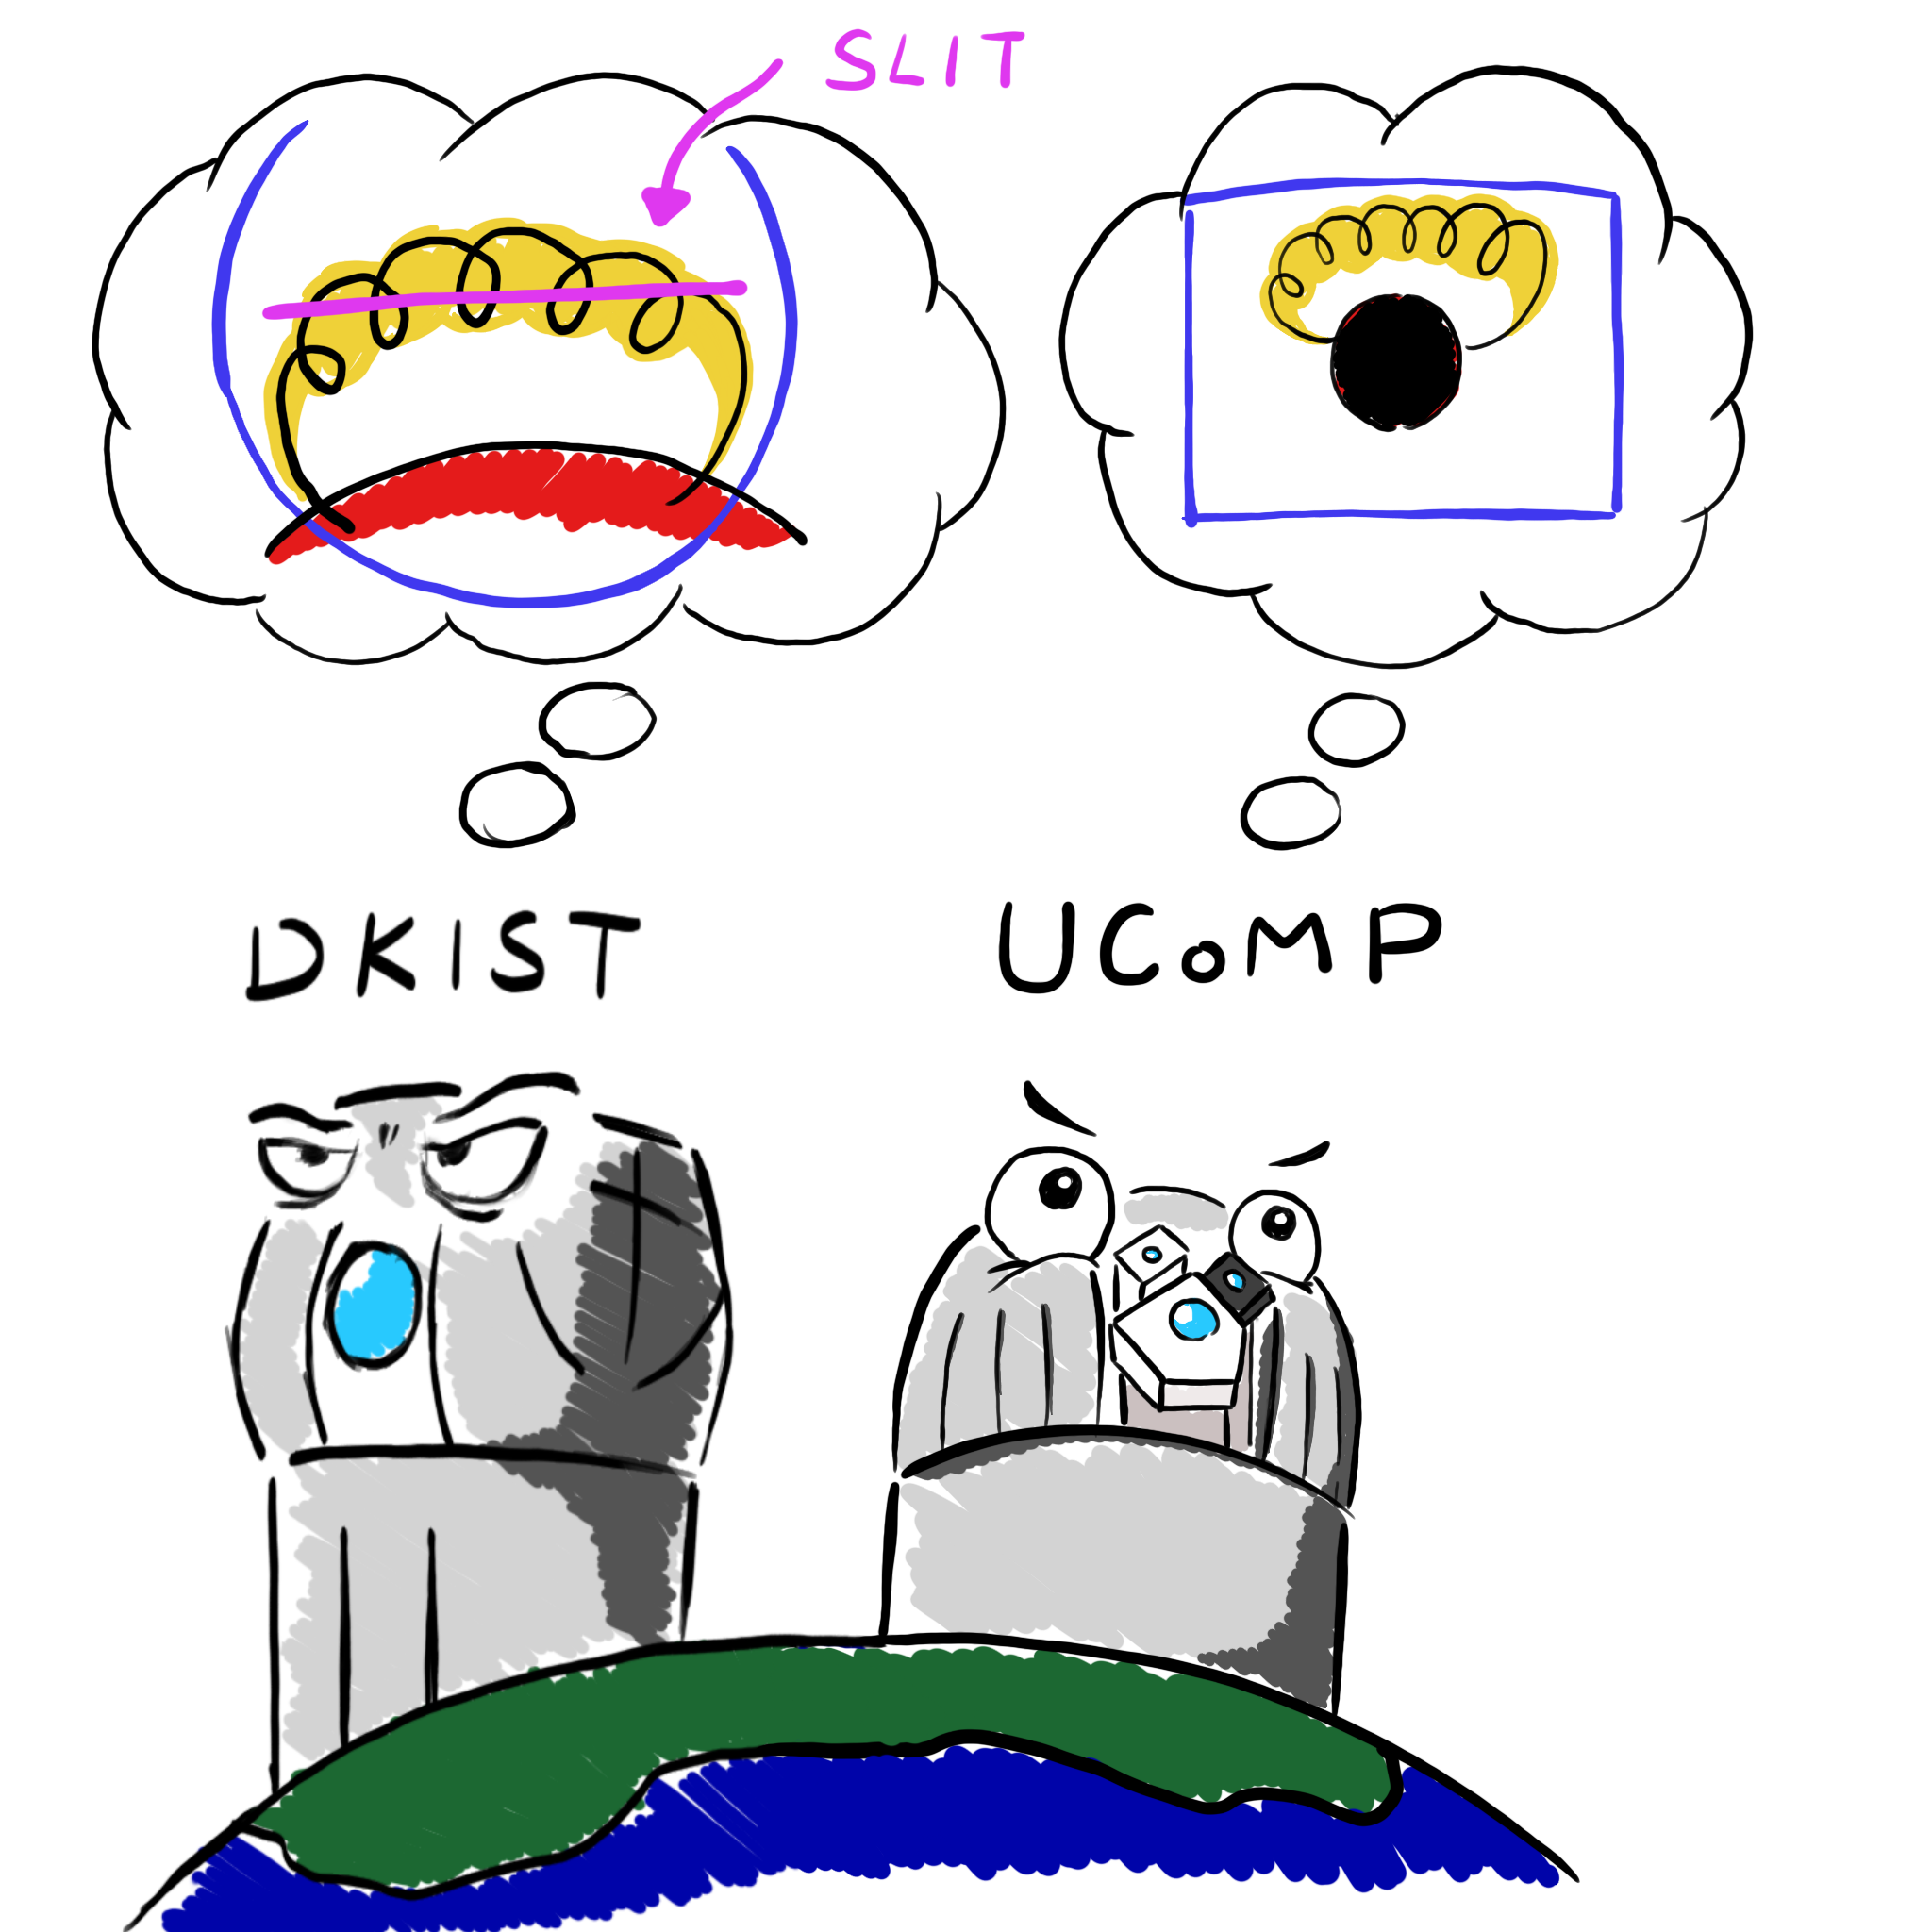 SLIT
DKIST
UCoMP